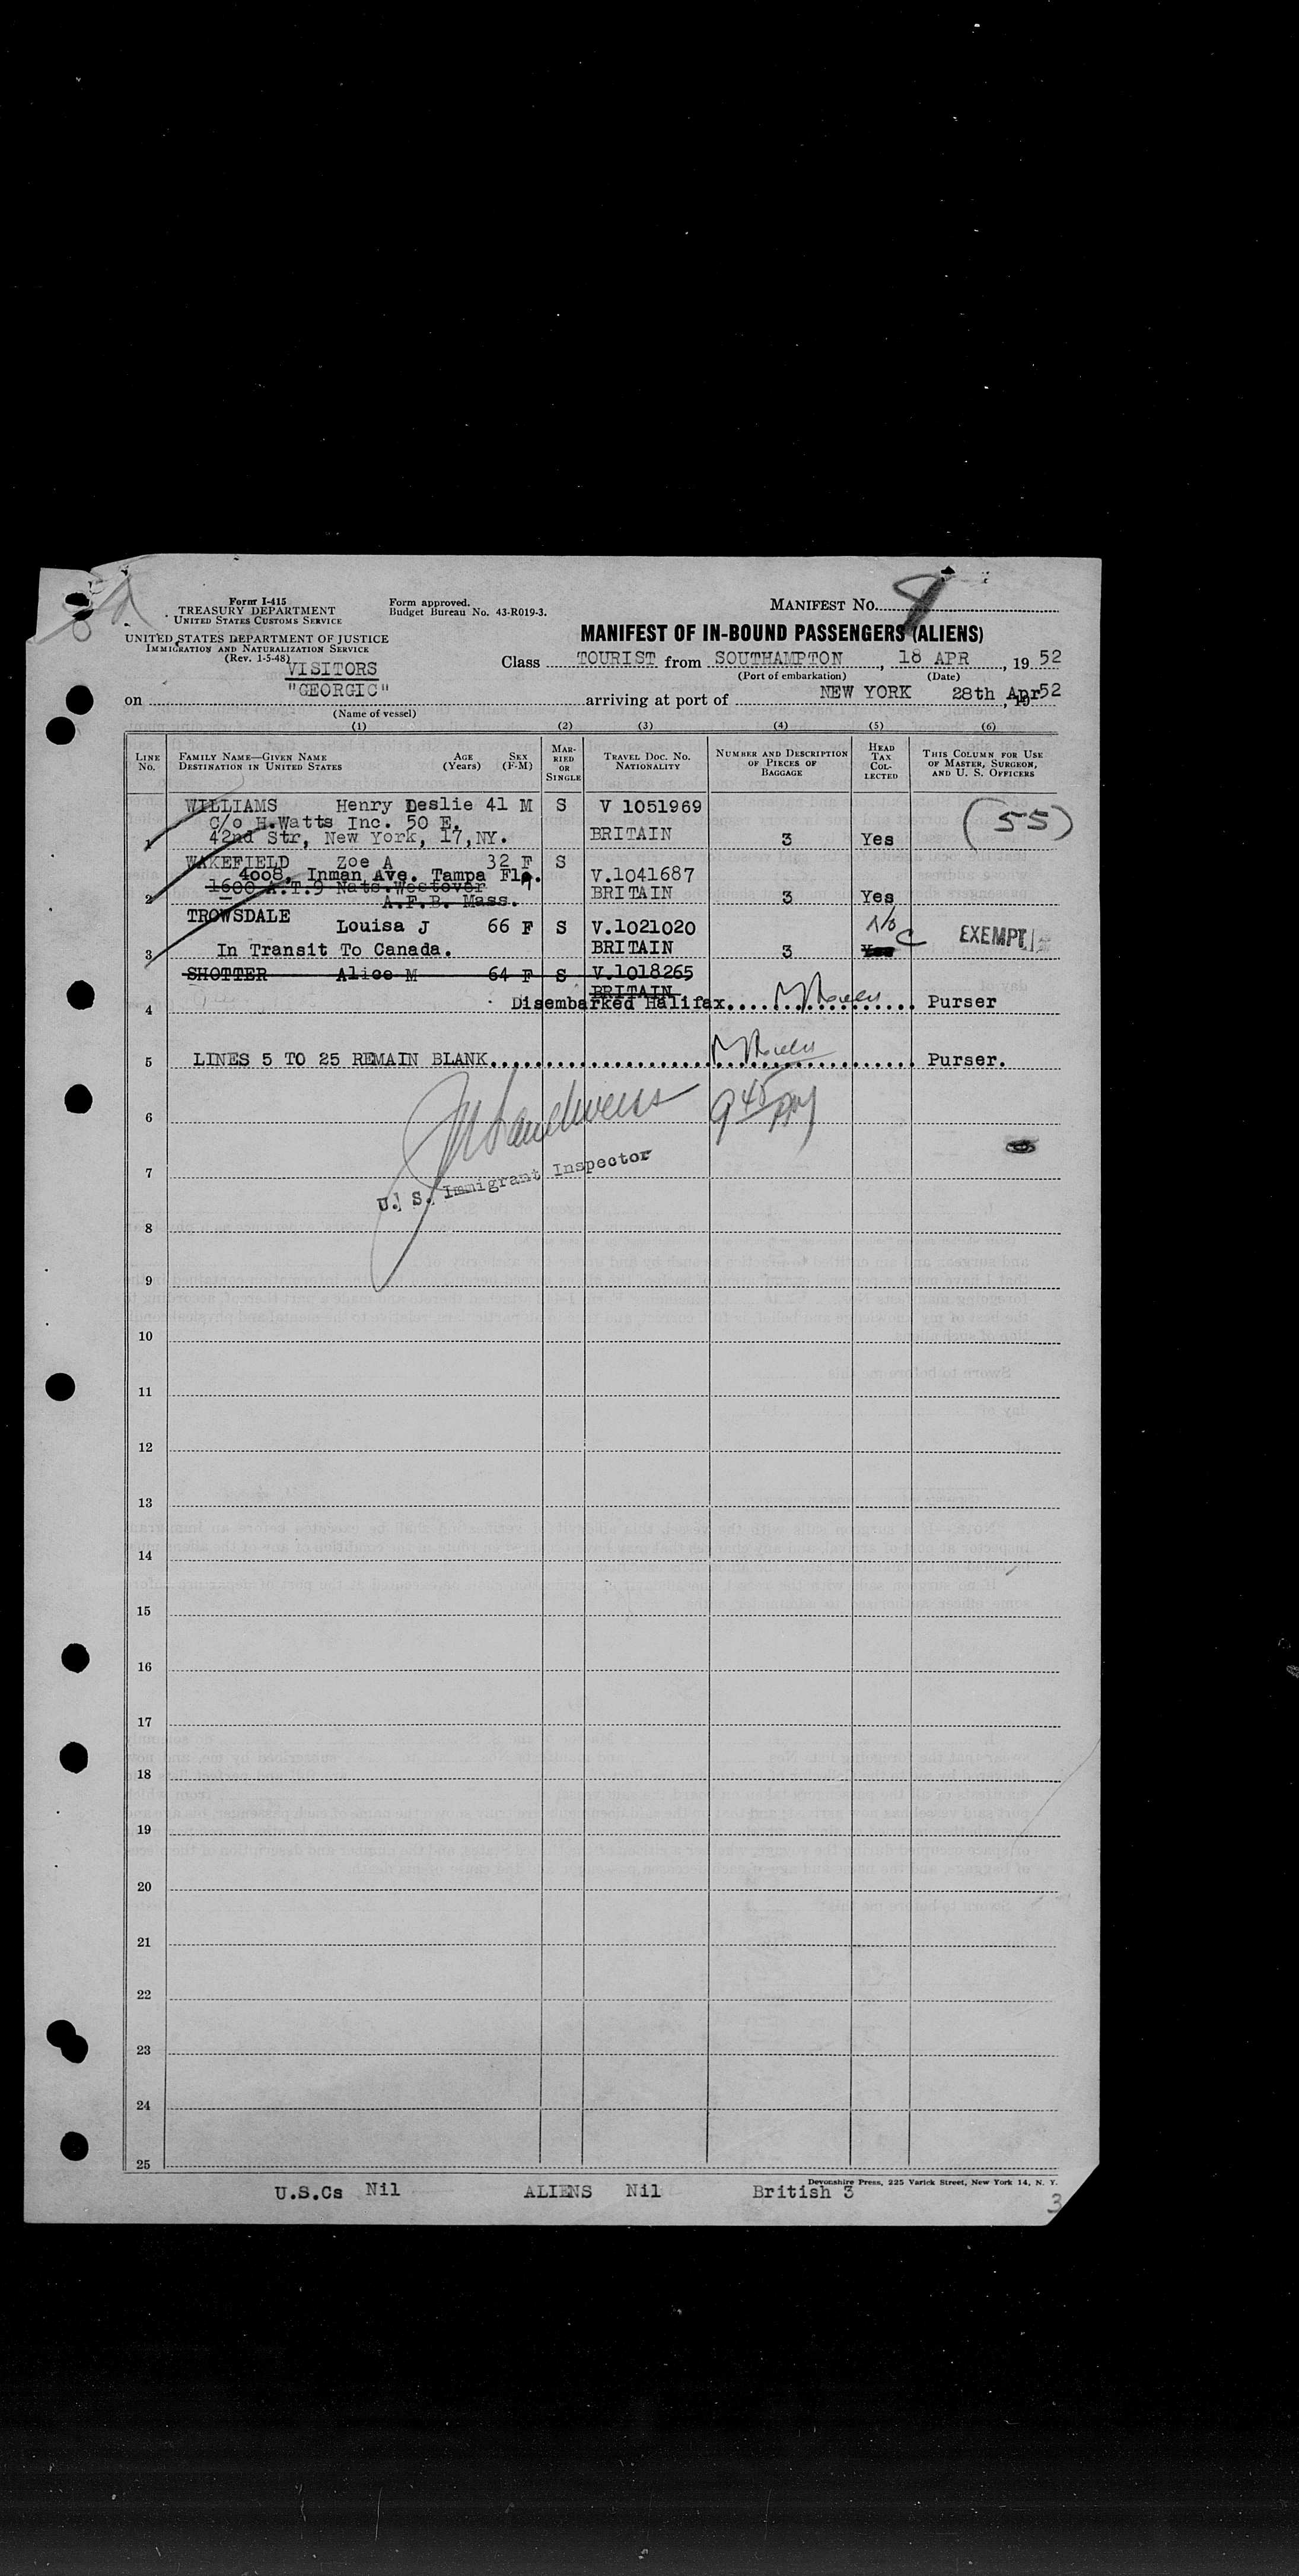 Form I-415
TREASURY DEPARTMENT
UNITED STATES CUSTOMS SERVICE
UNITED STATES DEPARTMENT OF JUSTICE
IMMIGRATION AND NATURALIZATION SERVICE
(Rev. 1-5-48)
Form approved.
Budget Bureau No. 43-R019-3.
MANIFEST NO.
MANIFEST OF IN-BOUND PASSENGERS (ALIENS)
VISITORS
Class TOURIST from SOUTHAMPTON, 18 APR, 19 52
(Port of embarkation) (Date)
on "GEORGIC" arriving at port of NEW YORK 28th Apr 52
(Name of vessel)
(1) (2) (3) (4) (5) (6)
LINE NO. FAMILY NAME—GIVEN NAME DESTINATION IN UNITED STATES AGE (Years) SEX (F-M) MARRIED OR SINGLE TRAVEL DOC. NO. NATIONALITY NUMBER AND DESCRIPTION OF PIECES OF BAGGAGE HEAD TAX COLLECTED THIS COLUMN FOR USE OF MASTER, SURGEON, AND U. S. OFFICERS
WILLIAMS Henry Leslie 41 M S V 1051969
C/o H.Watts Inc. 50 E. (55)
1 42nd Str, New York, 17,NY. BRITAIN 3 Yes
WAKEFIELD Zoe A 32 F S
4008, Inman Ave. Tampa Fla. V.1041687
2 1600 A.T.9 Nats.Westover BRITAIN 3 Yes
A.F.B. Mass.
TROWSDALE
Louisa J 66 F S V.1021020 No C EXEMPT
3 In Transit To Canada. BRITAIN 3 Yes
SHOTTER Alice M 64 F S V.1018265
BRITAIN
4 Disembarked Halifax.... Purser
5 LINES 5 TO 25 REMAIN BLANK.... Purser.
6 9 45 pm
7 U. S. Immigrant Inspector
8
9
10
11
12
13
14
15
16
17
18
19
20
21
22
23
24
25
Devonshire Press, 225 Varick Street, New York 14, N. Y.
U.S.Cs Nil ALIENS Nil British 3
3